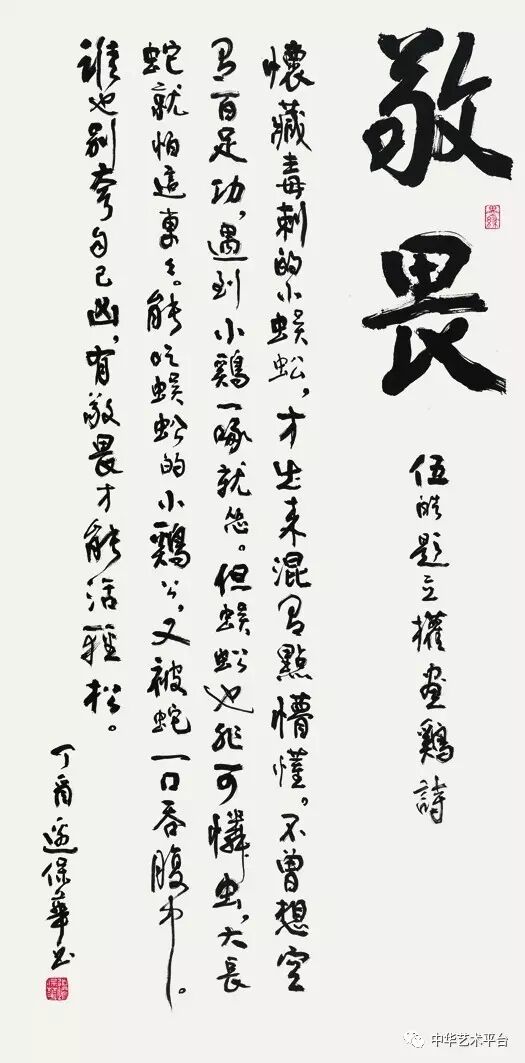 敬畏
伍皓題立權畫鷄詩
懷藏毒刺的小蜈蚣，才出来混有點懵懂。不曾想空
有百足功，遇到小鷄一啄就怂。但蜈蚣也非可憐虫，大長
蛇就怕這東々。能吃蜈蚣的小鷄公，又被蛇一口吞腹中。
誰也别夸自己凶，有敬畏才能活輕松。
丁酉保華书
中华艺术平台